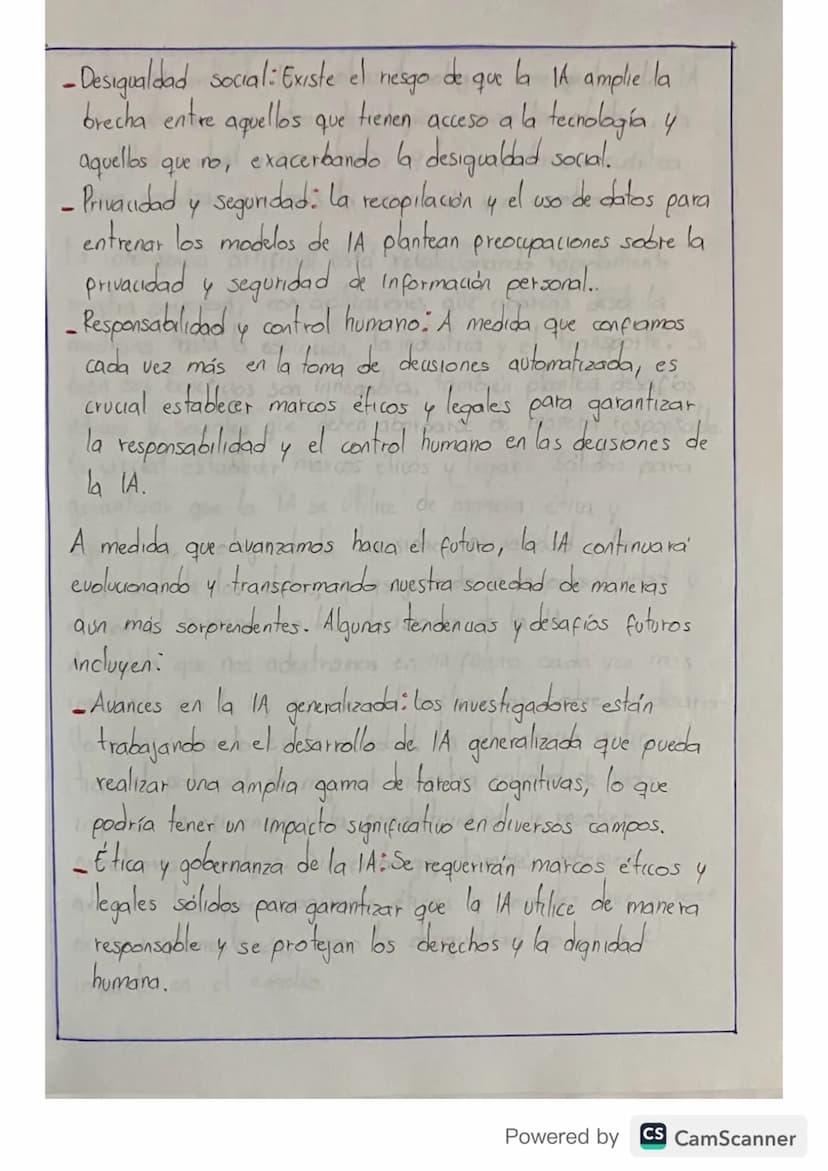 - Desigualdad social: Existe el riesgo de que la IA amplie la
brecha entre aquellos que tienen acceso a la tecnología y
aquellos que no, exacerbando la desigualdad social.
- Privacidad y seguridad: la recopilación y el uso de datos para
entrenar los modelos de IA plantean preocupaciones sobre la
privacidad y seguridad de información personal..
- Responsabilidad y control humano: A medida que confiamos
cada vez más en la toma de decisiones automatizada, es
crucial establecer marcos éticos y legales para garantizar
la responsabilidad y el control humano en las decisiones de
la IA.
A medida que avanzamos hacia el futuro, la IA continuará
evolucionando y transformando nuestra sociedad de maneras
aun más sorprendentes. Algunas tendencias y desafíos futuros
incluyen:
- Avances en la IA generalizada: los investigadores están
trabajando en el desarrollo de IA generalizada que pueda
realizar una amplia gama de tareas cognitivas, lo que
podría tener un impacto significativo en diversos campos.
- Ética y gobernanza de la IA: Se requerirán marcos éticos y
legales sólidos para garantizar que la IA utilice de manera
responsable y se protejan los derechos y la dignidad
humana.
Powered by CS CamScanner